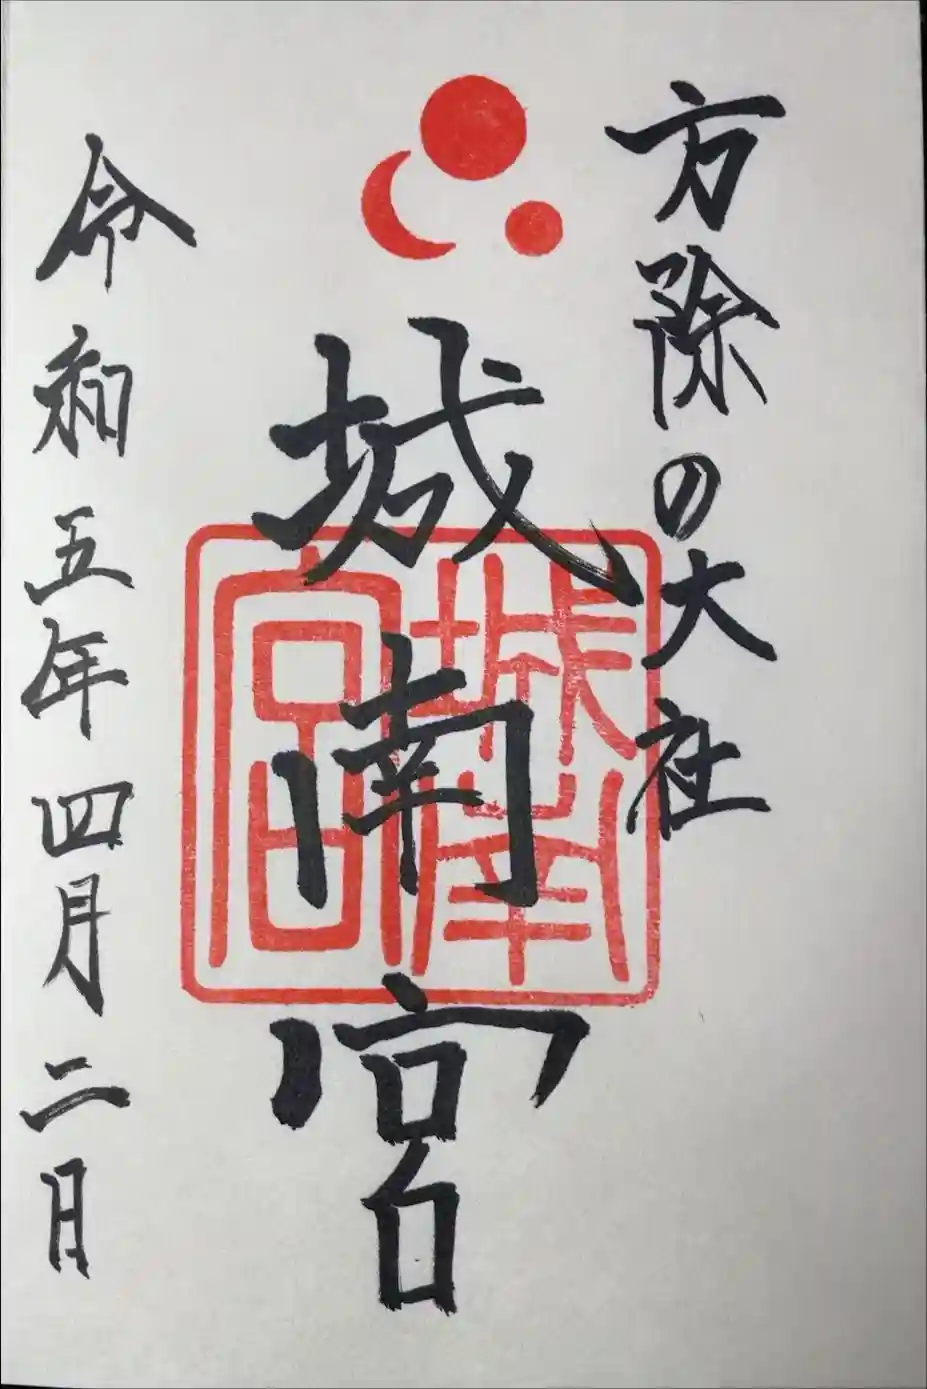 方除の大社
城南宮
城南宮
令和五年四月二日